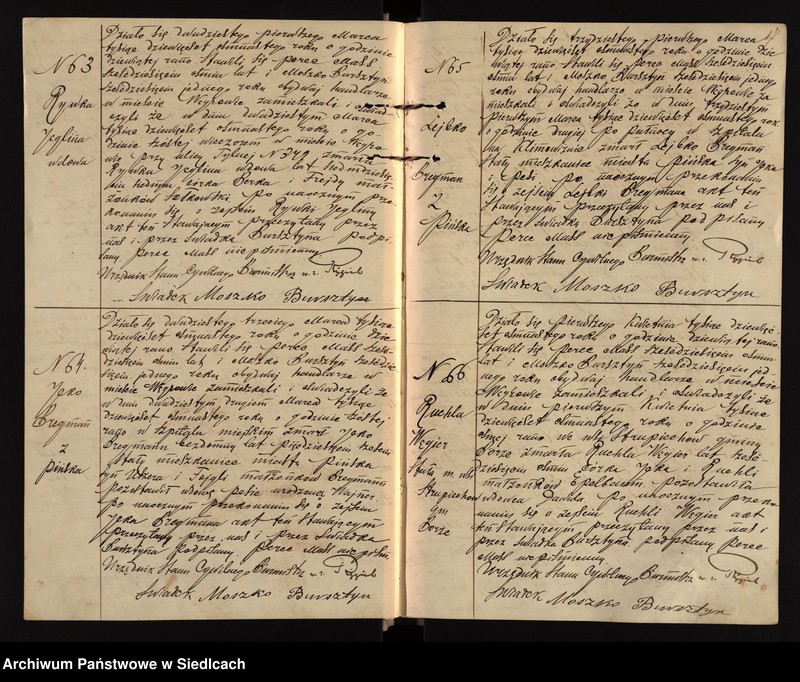 N 63
Rywka
Jeglina
wdowa
Działo się dwudziestego pierwszego Marca
tysiąc dziewięćset ósmnastego roku o godzinie
dziewiątej rano. Stawili się Perec Małś
sześdziesięciu ośmiu lat i Moszko Bursztyn
sześdziesięciu jednego roku obydwaj handlarze
w mieście Węgrowie zamieszkali i oświad
czyli że w dniu dwudziestym Marca
tysiąc dziewięćset ósmnastego roku o go
dzinie szóstej wieczorem w mieście Węgro
wie przy ulicy Tylnej N zmarła
Rywka Jeglina wdowa lat
córka Berka i mał
żonków Po naocznym prze
konaniu się o zejściu Rywki Jegliny
akt ten stawającym przeczytany przez
nas i przez świadka Bursztyna podpi
sany Perec Małś nie piśmienny
Urzędnik Stanu Cywilnego Burmistrz
Świadek Moszko Bursztyn
N 64.
Icko
Bregman
z
Pińska
Działo się dwudziestego trzeciego Marca tysiąc
dziewięćset ósmnastego roku o godzinie dzie
wiątej rano. Stawili się Perec Małś sześ
dziesięciu ośmiu lat i Moszko Bursztyn sześdzie
sięciu jednego roku obydwaj handlarze w
mieście Węgrowie zamieszkali i oświadczyli że
w dniu dwudziestym drugim Marca tysiąc
dziewięćset ósmnastego roku o godzinie szóstej
rano w szpitalu miejskim zmarł Icko
Bregmann bezdomny lat pięćdziesiąt sześć
stały mieszkaniec miasta Pińska
syn i Fejgli małżonków Bregmann
pozostawił wdowę Pesię urodzoną
Po naocznym przekonaniu się o zejściu
Icka Bregmana akt ten stawającym
przeczytany przez nas i przez świadka
Bursztyna podpisany Perec Małś nie piśm.
Urzędnik Stanu Cywilnego Burmistrz
Świadek Moszko Bursztyn
N 65
Lejbko
Bregman
z
Pińska
Działo się trzydziestego pierwszego Marca
tysiąc dziewięćset ósmnastego roku o godzinie dzie
wiątej rano. Stawili się Perec Małś sześdziesięciu
ośmiu lat i Moszko Bursztyn sześdziesięciu jednego
roku obydwaj handlarze w mieście Węgrowie za
mieszkali i oświadczyli że w dniu trzydziestym
pierwszym Marca tysiąc dziewięćset ósmnastego rok
o godzinie drugiej po północy w szpitalu
na zmarł Lejbko Bregman
stały mieszkaniec miasta Pińska syn Icka
i Pesi Po naocznym przekonaniu
się o zejściu Lejbki Bregmana akt ten
stawającym przeczytany przez nas i
przez świadka Bursztyna podpisany
Perec Małś nie piśmienny
Urzędnik Stanu Cywilnego Burmistrz
Świadek Moszko Bursztyn
N 66
Ruchla
Węgier
stała m. wsi
Strupiechów
gm
Borze
Działo się pierwszego Kwietnia tysiąc dziewięć
set ósmnastego roku o godzinie dziewiątej rano.
Stawili się Perec Małś sześdziesięciu ośmiu
lat i Moszko Bursztyn sześdziesięciu jed
nego roku obydwaj handlarze w mieście
Węgrowie zamieszkali i oświadczyli że
w dniu pierwszym Kwietnia tysiąc
dziewięćset ósmnastego roku o godzinie
ósmej rano we wsi Strupiechów gminy
Borze zmarła Ruchla Węgier lat sześć
dziesiąt ośm córka Icka i Ruchli
małżonków Epelbaum. Pozostawiła
wdowca Dawida. Po naocznym przeko
naniu się o zejściu Ruchli Węgier akt
ten stawającym przeczytany przez nas i
przez świadka Bursztyna podpisany Perec
Małś nie piśmienny
Urzędnik Stanu Cywilnego Burmistrz
Świadek Moszko Bursztyn
Archiwum Państwowe w Siedlcach